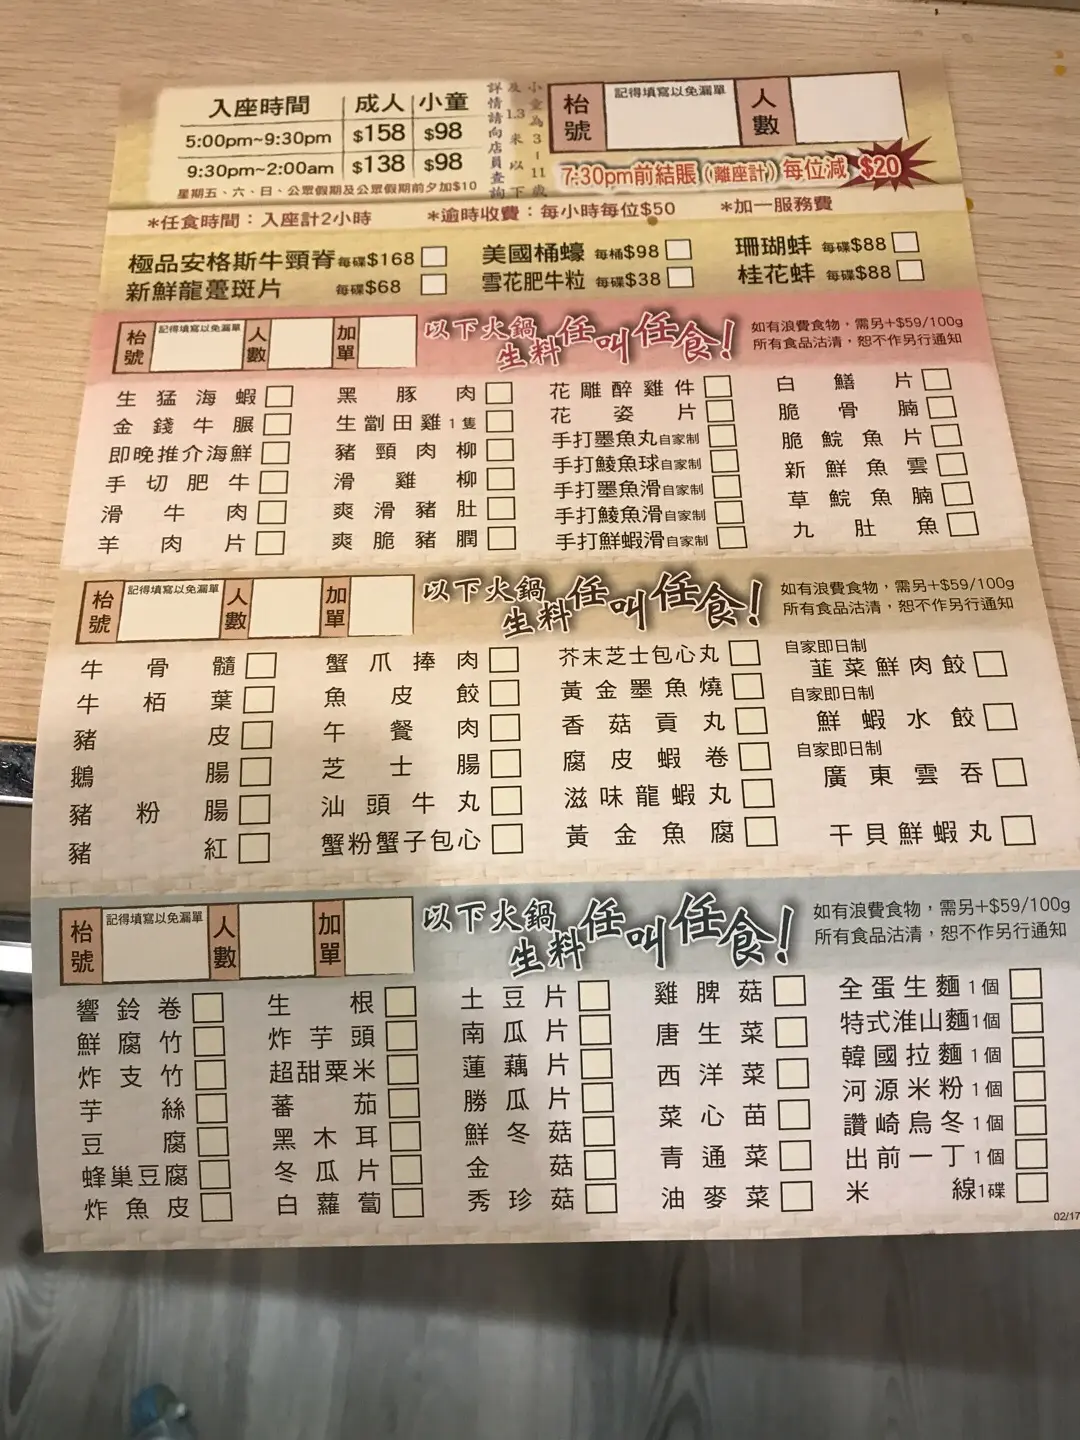 入座時間 成人 小童
5:00pm~9:30pm $158 $98
9:30pm~2:00am $138 $98
星期五、六、日、公眾假期及公眾假期前夕加$10
小童為3-11歲
及1.3米以下
詳情請向店員查詢
枱號 記得填寫以免漏單 人數
7:30pm前結賬(離座計)每位減 $20
*任食時間：入座計2小時 *逾時收費：每小時每位$50 *加一服務費
極品安格斯牛頸脊 每碟$168 美國桶蠔 每桶$98 珊瑚蚌 每碟$88
新鮮龍躉斑片 每碟$68 雪花肥牛粒 每碟$38 桂花蚌 每碟$88
枱號 記得填寫以免漏單 人數 加單
以下火鍋生料任叫任食！
如有浪費食物，需另+$59/100g
所有食品沽清，恕不作另行通知
生猛海蝦 黑豚肉 花雕醉雞件 白鱔片
金錢牛𦟌 生劏田雞1隻 花姿片 脆骨腩
即晚推介海鮮 豬頸肉柳 手打墨魚丸自家制 脆鯇魚片
手切肥牛 滑雞柳 手打鯪魚球自家制 新鮮魚雲
滑牛肉 爽滑豬肚 手打墨魚滑自家制 草鯇魚腩
羊肉片 爽脆豬膶 手打鯪魚滑自家制 九肚魚
手打鮮蝦滑自家制
枱號 記得填寫以免漏單 人數 加單
以下火鍋生料任叫任食！
如有浪費食物，需另+$59/100g
所有食品沽清，恕不作另行通知
牛骨髓 蟹爪捧肉 芥末芝士包心丸 自家即日制 韮菜鮮肉餃
牛栢葉 魚皮餃 黃金墨魚燒 自家即日制 鮮蝦水餃
豬皮 午餐肉 香菇貢丸 自家即日制 廣東雲吞
鵝腸 芝士腸 腐皮蝦卷
豬粉腸 汕頭牛丸 滋味龍蝦丸 干貝鮮蝦丸
豬紅 蟹粉蟹子包心 黃金魚腐
枱號 記得填寫以免漏單 人數 加單
以下火鍋生料任叫任食！
如有浪費食物，需另+$59/100g
所有食品沽清，恕不作另行通知
響鈴卷 生根 土豆片 雞脾菇 全蛋生麵1個
鮮腐竹 炸芋頭 南瓜片 唐生菜 特式淮山麵1個
炸支竹 超甜粟米 蓮藕片 西洋菜 韓國拉麵1個
芋絲 蕃茄 勝瓜片 菜心苗 河源米粉1個
豆腐 黑木耳 鮮冬菇 青通菜 讚崎烏冬1個
蜂巢豆腐 冬瓜片 金菇 油麥菜 出前一丁1個
炸魚皮 白蘿蔔 秀珍菇 米線1碟
02/17